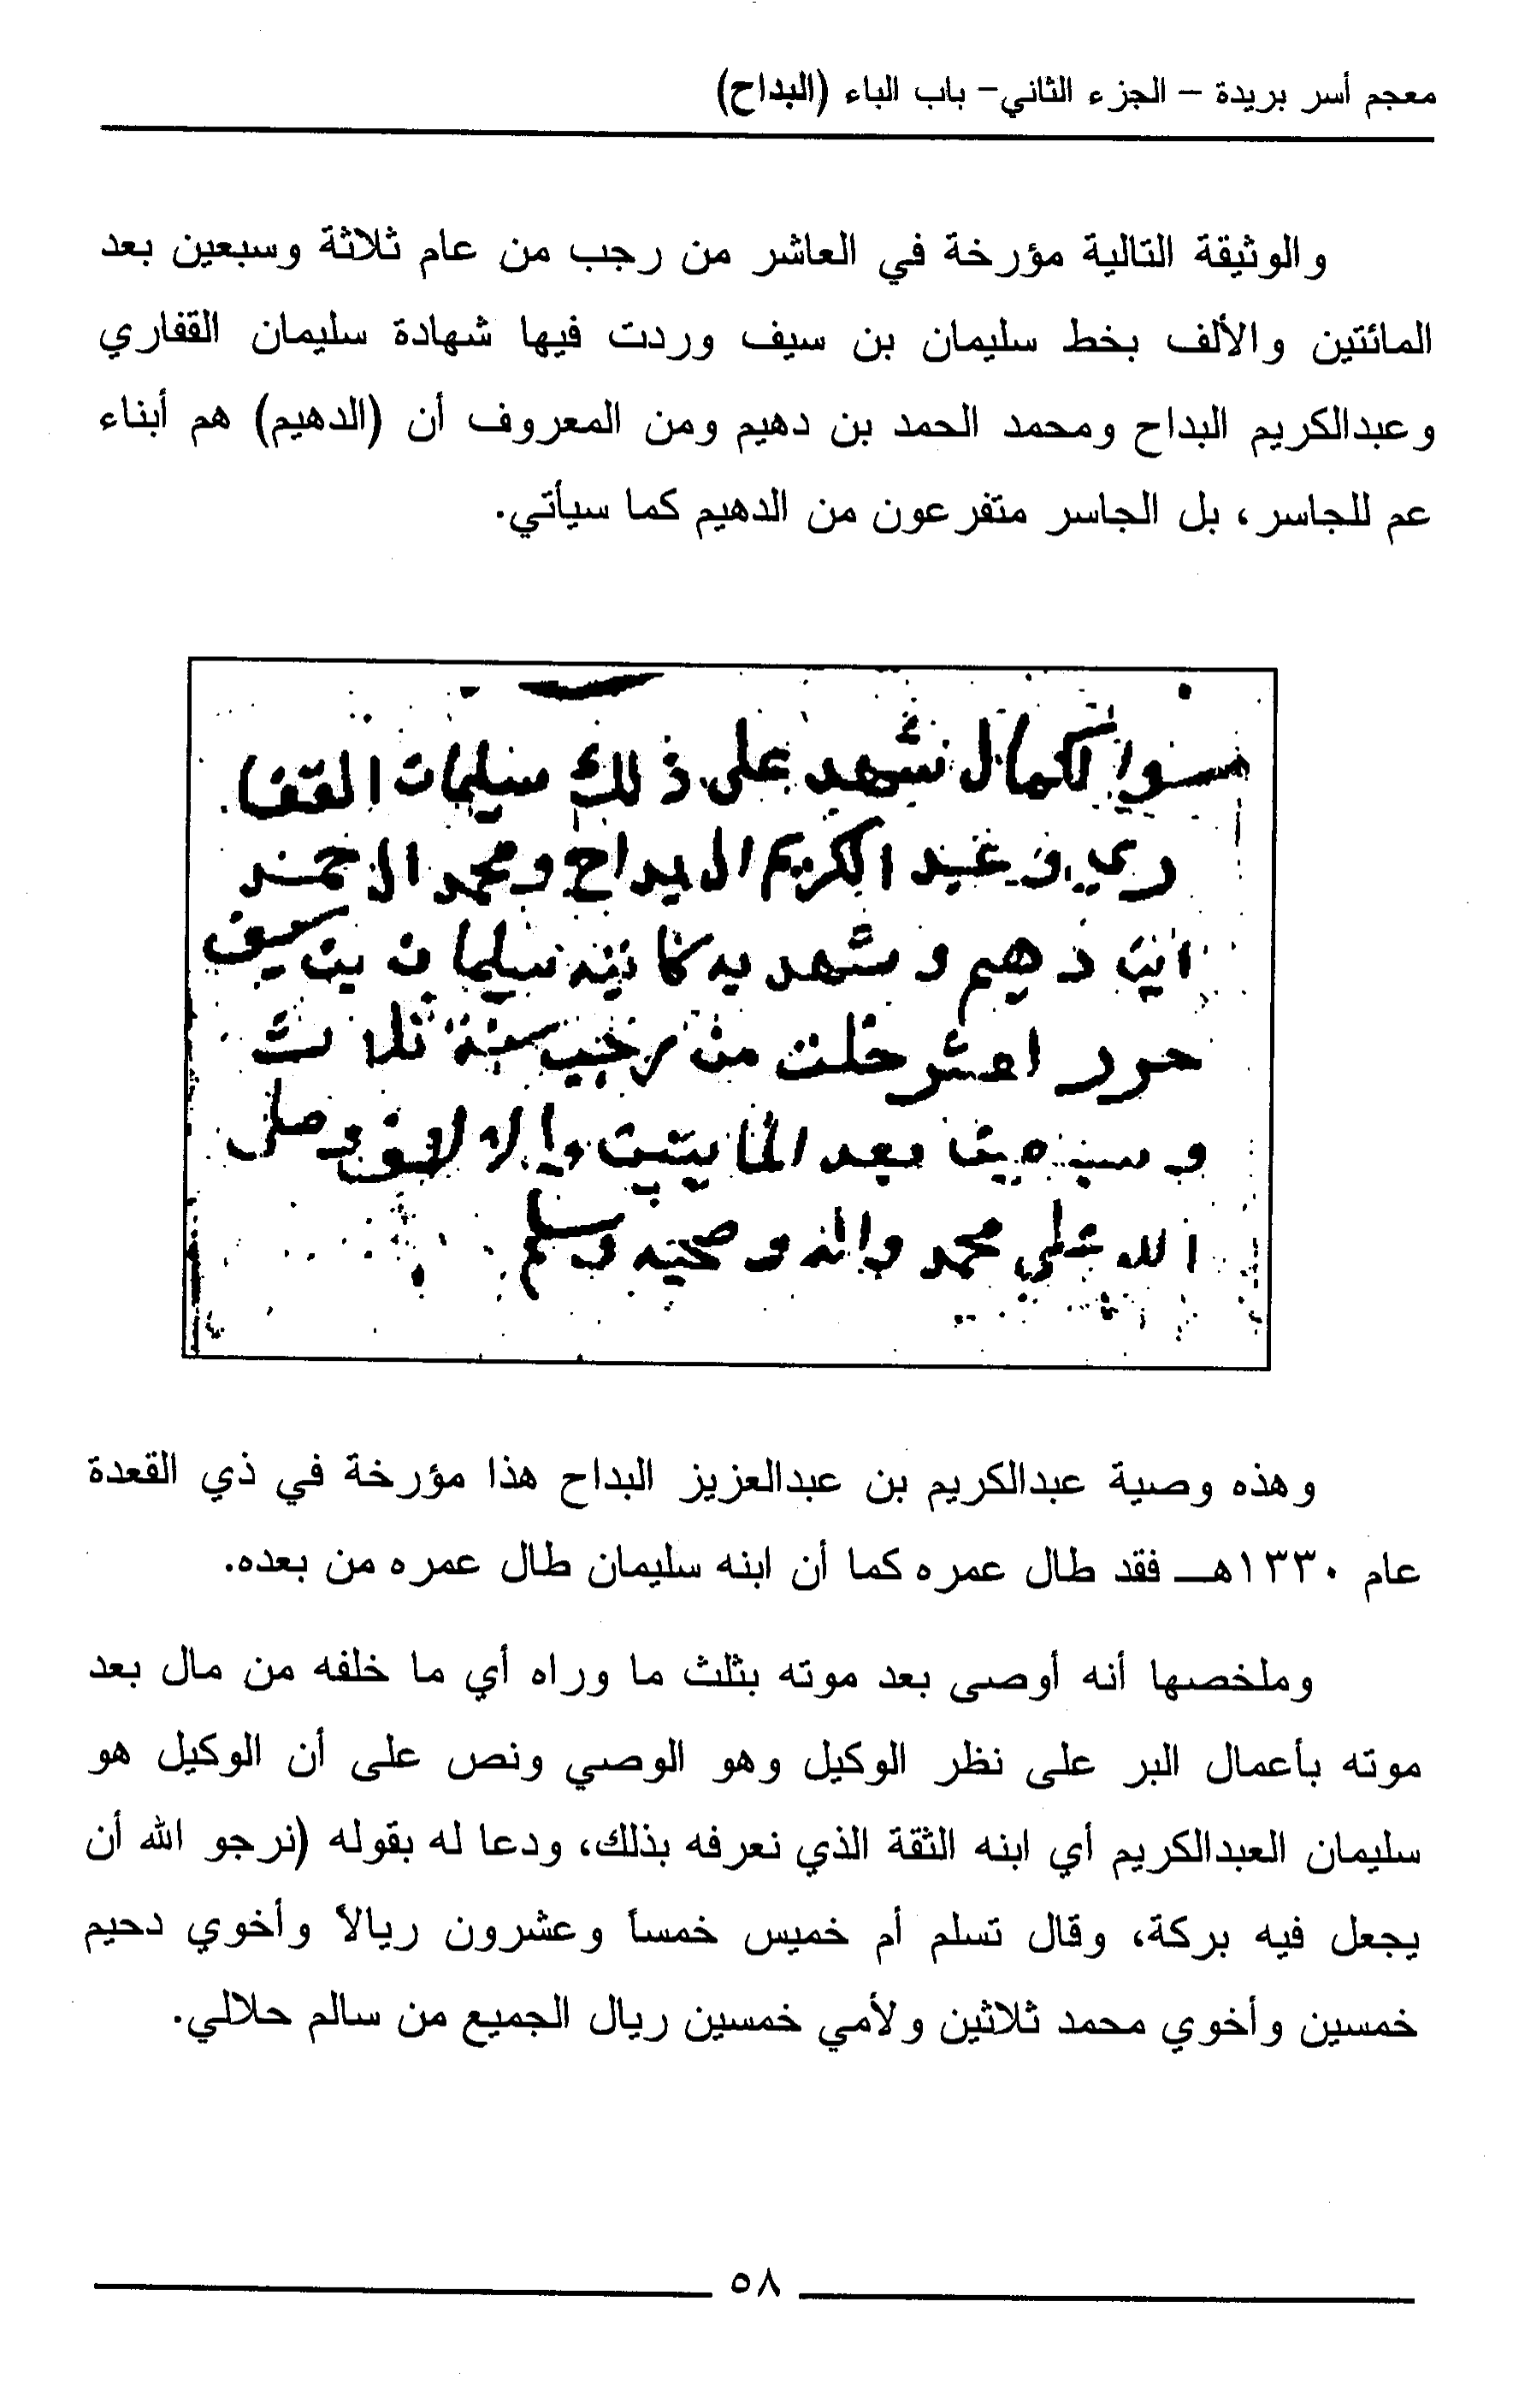 معجم أسر بريدة – الجزء الثاني– باب الباء (البداح)
والوثيقة التالية مؤرخة في العاشر من رجب من عام ثلاثة وسبعين بعد
المائتين والألف بخط سليمان بن سيف وردت فيها شهادة سليمان القفاري
وعبدالكريم البداح ومحمد الحمد بن دهيم ومن المعروف أن (الدهيم) هم أبناء
عم للجاسر، بل الجاسر متفرعون من الدهيم كما سيأتي.
الكمال نشهد على ذلك سليمان القفا
ري و عبد الكريم البداح ومحمد الحمد
ابن دهيم و شهد به كاتبه سليمان بن سيف
حرر اعشر خلت من رجب سنة ثلاث
و سبعين بعد المايتين والالف وصلى
الله على محمد واله وصحبه وسلم
وهذه وصية عبدالكريم بن عبدالعزيز البداح هذا مؤرخة في ذي القعدة
عام ١٣٣٠هـ فقد طال عمره كما أن ابنه سليمان طال عمره من بعده.
وملخصها أنه أوصى بعد موته بثلث ما وراه أي ما خلفه من مال بعد
موته بأعمال البر على نظر الوكيل وهو الوصي ونص على أن الوكيل هو
سليمان العبدالكريم أي ابنه الثقة الذي نعرفه بذلك، ودعا له بقوله (نرجو الله أن
يجعل فيه بركة، وقال تسلم أم خميس خمساً وعشرون ريالاً وأخوي دحيم
خمسين وأخوي محمد ثلاثين ولأمي خمسين ريال الجميع من سالم حلالي.
٥٨